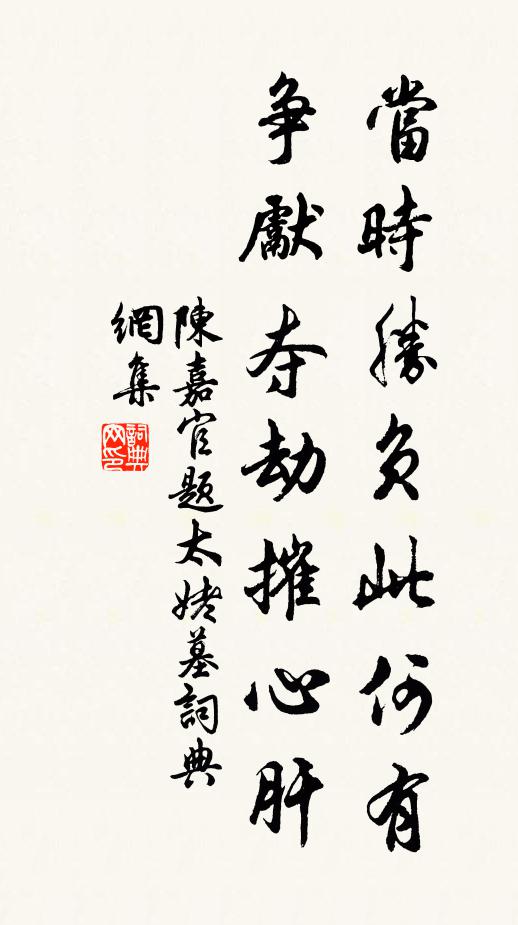 當時勝負此何有
爭獻夺劫摧心肝
陳嘉官題太姥墓詞典
網集
詞典
网印